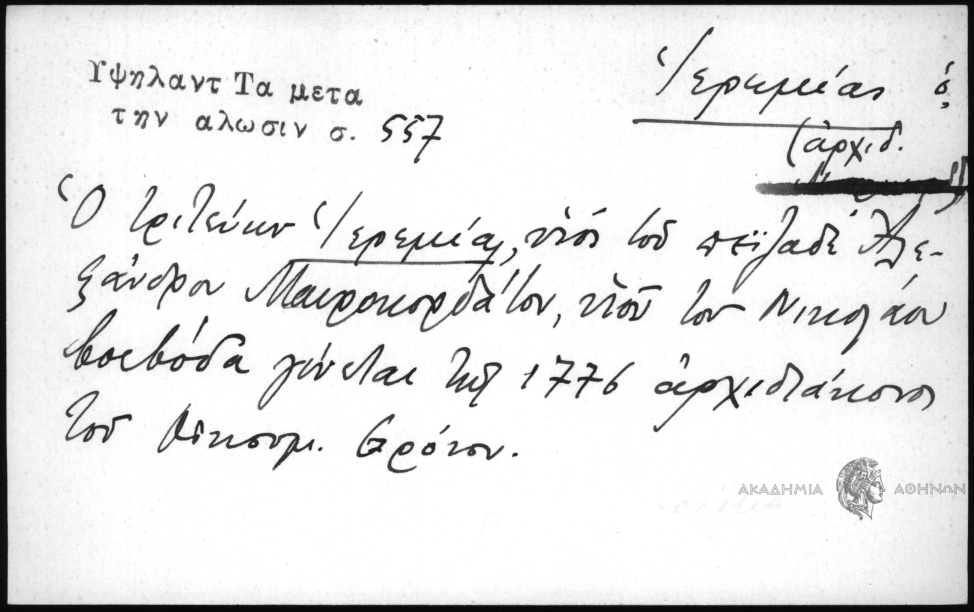 Υψηλαντ Τα μετα
την αλωσιν σ. 557
Ἱερεμίας ὁ
(ἀρχιδ.
Ὁ τριτεύων Ἱερεμίας, υἱὸς τοῦ πεϊζαδὲ Ἀλε-
ξάνδρου Μαυροκορδάτου, υἱοῦ τοῦ Νικολάου
βοεβόδα γίνεται τῷ 1776 ἀρχιδιάκονος
τοῦ Οἰκουμ. Θρόνου.
ΑΚΑΔΗΜΙΑ ΑΘΗΝΩΝ